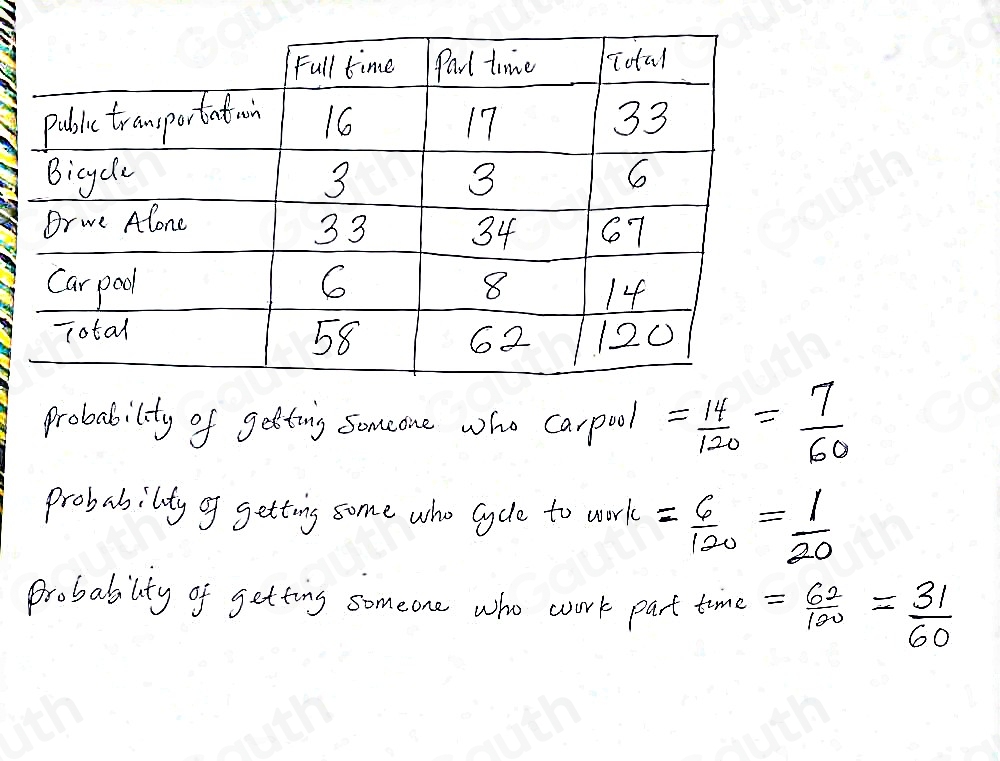 Full time Part time Total
Public transportation 16 17 33
Bicycle 3 3 6
Drive Alone 33 34 67
Car pool 6 8 14
Total 58 62 120
probability of getting someone who carpool = 14/120 = 7/60
probability of getting some who cycle to work = 6/120 = 1/20
probability of getting someone who work part time = 62/120 = 31/60